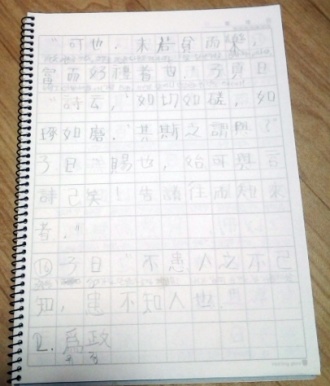 "可也，未若貧而樂，
富而好禮者也."子貢曰
"詩云，'如切如磋，如
琢如磨，'其斯之謂與？"
子曰"賜也，始可與言
詩己矣！告諸往而知來
者."
⑯子曰"不患人之不己
知，患不知人也."
2. 爲政